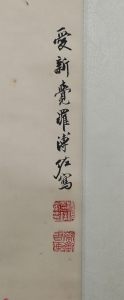 愛新覺羅溥佐寫